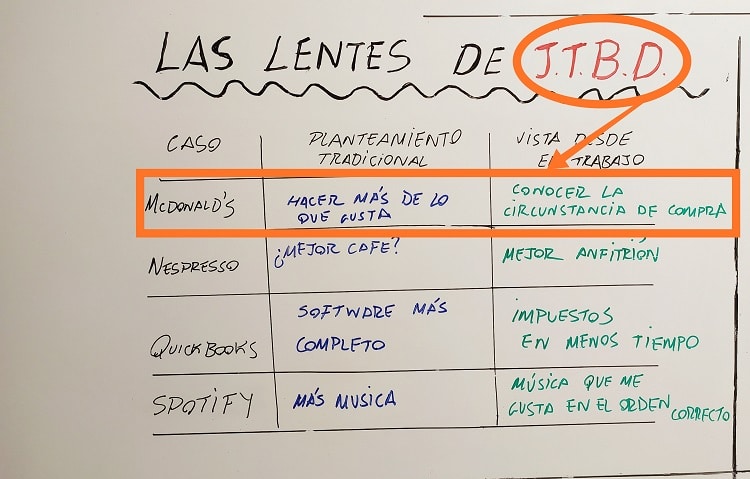 LAS LENTES DE J.T.B.D.
CASO
PLANTEAMIENTO
TRADICIONAL
VISTA DESDE
EL TRABAJO
McDONALD'S
HACER MÁS DE LO
QUE GUSTA
CONOCER LA
CIRCUNSTANCIA DE COMPRA
NESPRESSO
¿MEJOR CAFE?
MEJOR ANFITRIÓN
QUICKBOOKS
SOFTWARE MÁS
COMPLETO
IMPUESTOS
EN MENOS TIEMPO
SPOTIFY
MÁS MUSICA
MÚSICA QUE ME
GUSTA EN EL ORDEN
CORRECTO